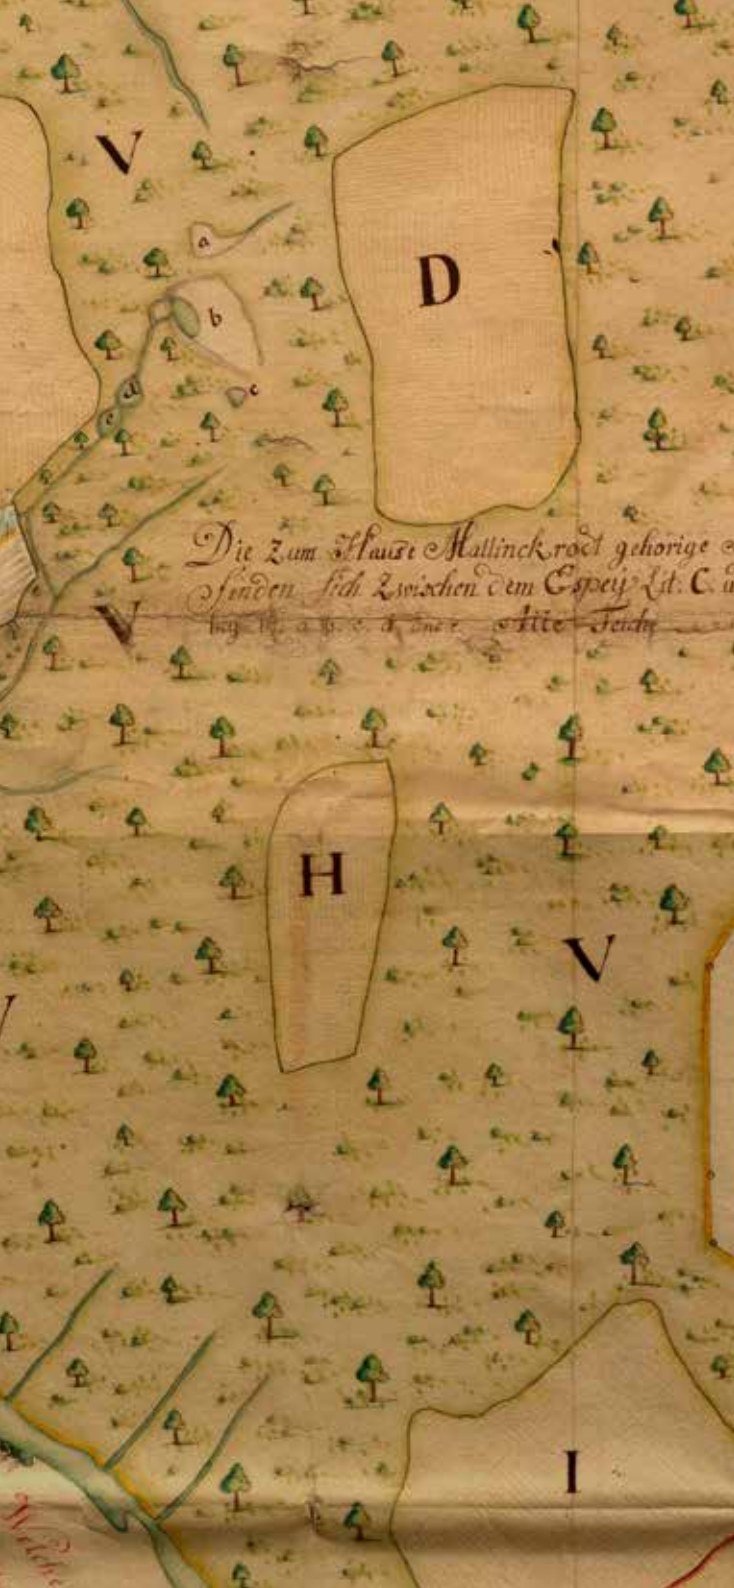 V
a
D
b
c
d
e
Die Zum Hause Mallinckrodt gehörige
finden sich Zwischen dem Espey Lit. C. u
a. b. c. d. Alte Teiche
V
H
V
V
I
Welche